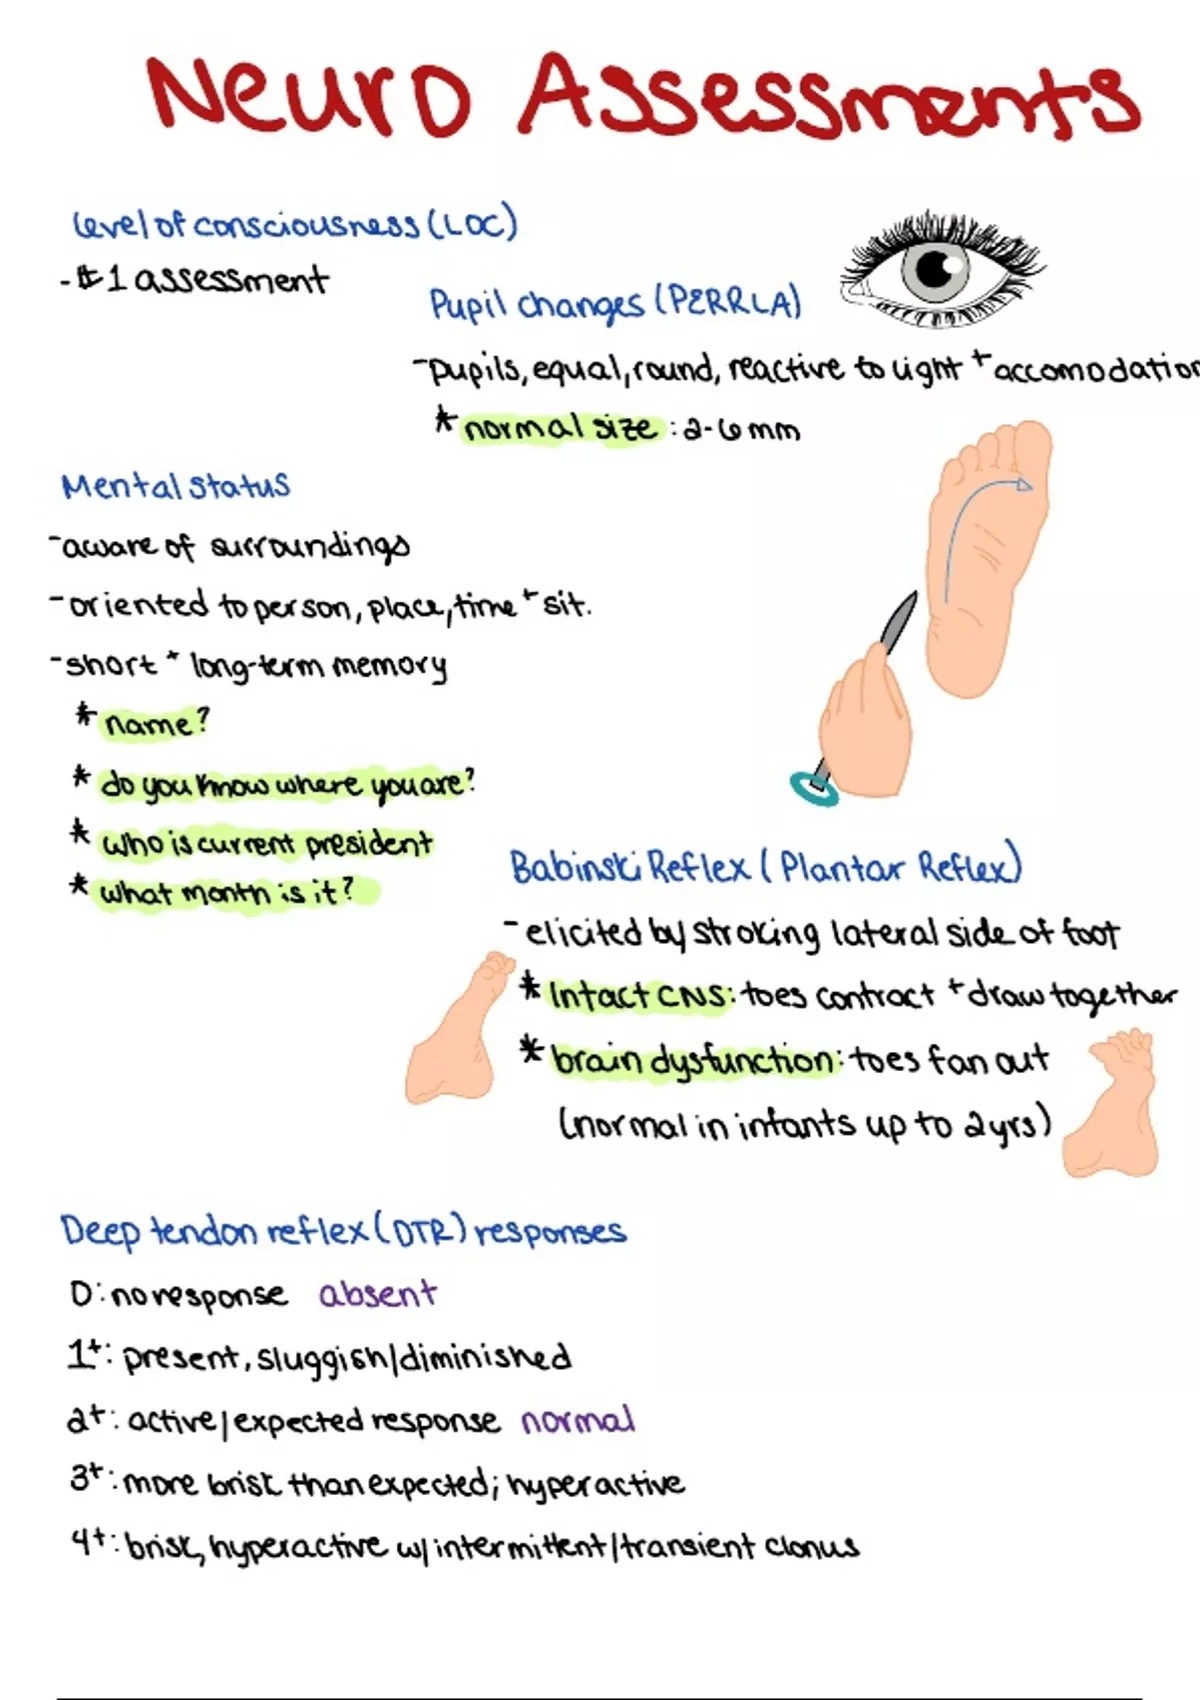 Neuro Assessments
level of consciousness (LOC)
- #1 assessment
Pupil changes (PERRLA)
- pupils, equal, round, reactive to light + accomodation
* normal size : 2-6 mm
Mental status
- aware of surroundings
- oriented to person, place, time + sit.
- short + long-term memory
* name?
* do you know where you are?
* who is current president
* what month is it?
Babinski Reflex (Plantar Reflex)
- elicited by stroking lateral side of foot
* Intact CNS: toes contract + draw together
* brain dysfunction: toes fan out
(normal in infants up to 2 yrs)
Deep tendon reflex (DTR) responses
0: no response absent
1+: present, sluggish/diminished
2+: active/expected response normal
3+: more brisk than expected; hyperactive
4+: brisk, hyperactive w/ intermittent/transient clonus